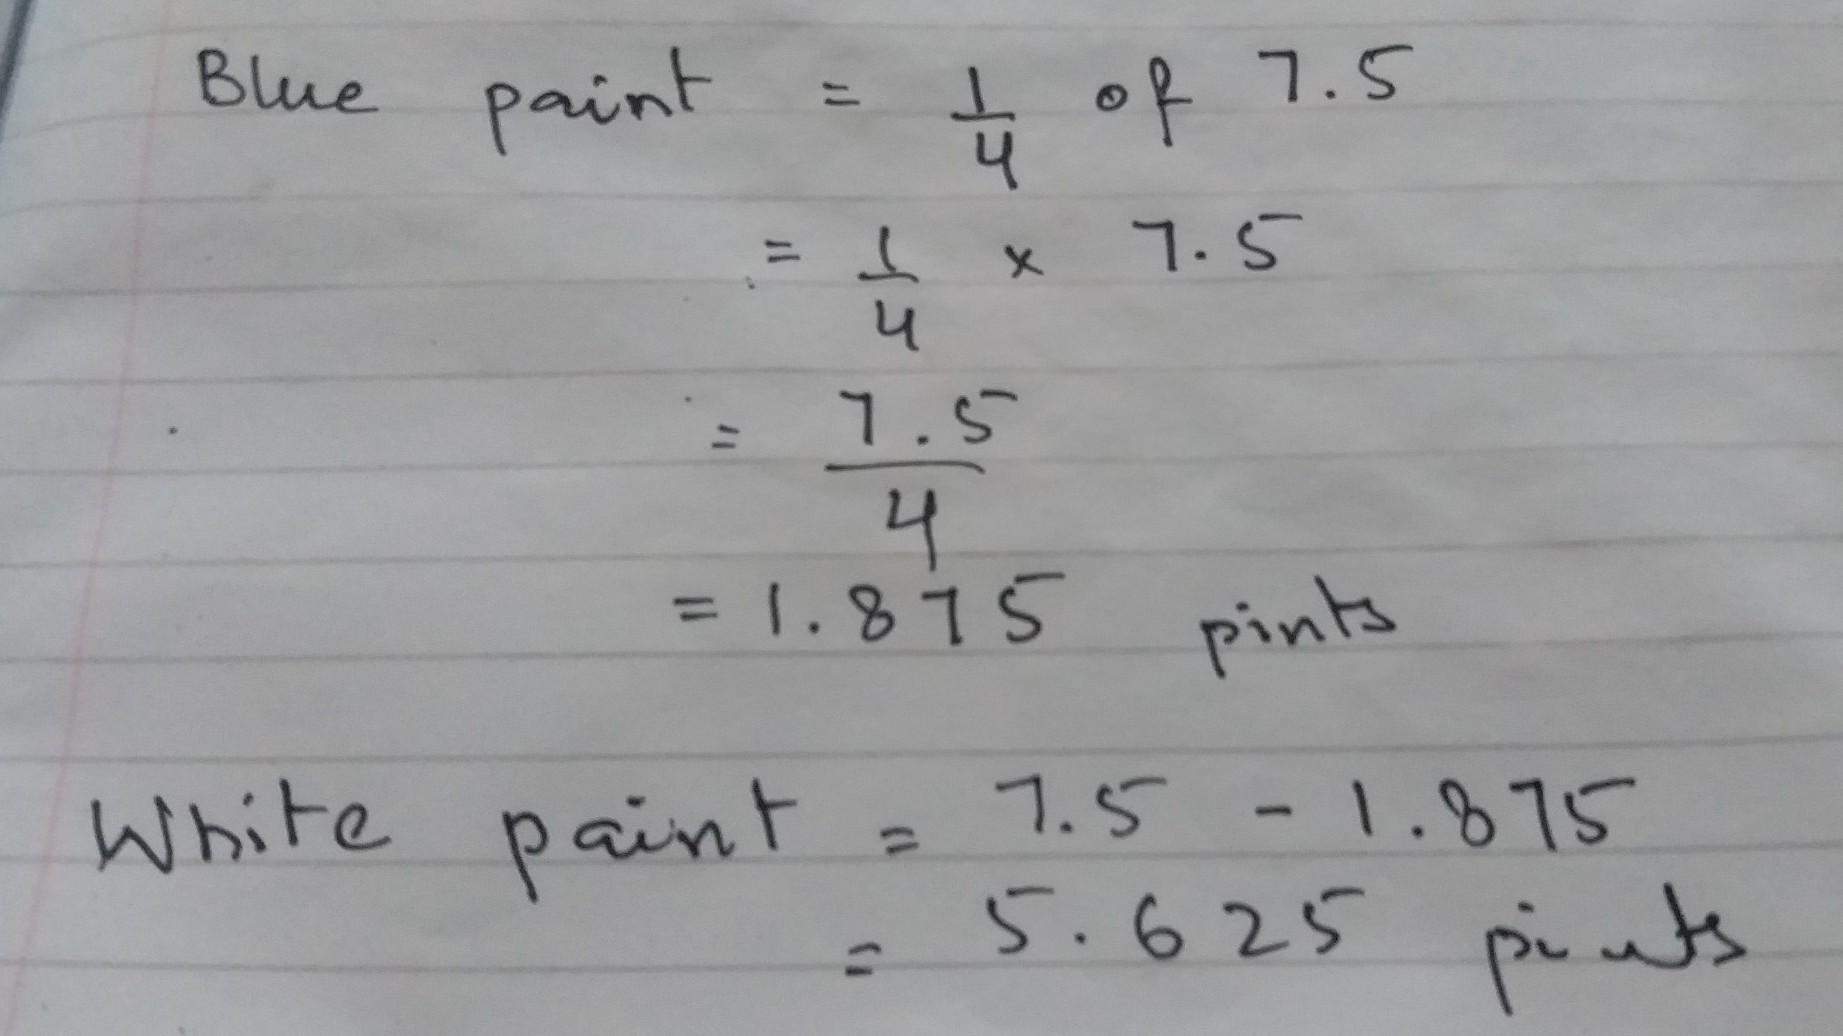 Blue paint = 1/4 of 7.5
= 1/4 × 7.5
= 7.5/4
= 1.875 pints
White paint = 7.5 - 1.875
= 5.625 pints